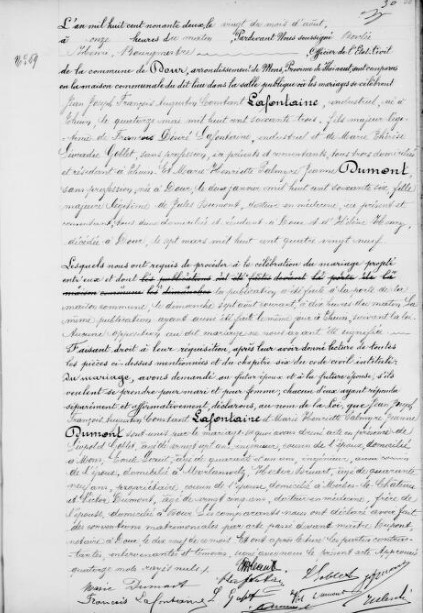 L'an mil huit cent nonante deux, le vingt du mois d'août,
à onze heures du matin, Pardevant Nous soussigné
Bourgmestre Officier de l'Etat-Civil
de la commune de Dour, arrondissement de Mons, Province de Hainaut, ont comparu
en la maison communale du dit lieu dans la salle publique où les mariages se célèbrent
Jean Joseph François Augustin Constant Lafontaine, industriel, né à
Thuin, le quatorze mai mil huit cent soixante trois, fils majeur légi-
time de François Lafontaine, industriel et de Marie Thérèse
Gollet, sans profession, ici présents et consentants, tous trois domiciliés
et résidant à Thuin. Et Marie Henriette Palmyre Jeanne Dumont,
sans profession, née à Dour, le deux janvier mil huit cent soixante six, fille
majeure légitime de Jules Dumont, docteur en médecine, ici présent et
consentant, tous deux domiciliés et résidant à Dour et d'Hélène
décédée à Dour, le sept mars mil huit cent quatre vingt neuf.
Lesquels nous ont requis de procéder à la célébration du mariage projeté
entre eux et dont les publications ont été faites devant la porte de la
maison commune les dimanches la publication a été faite à la porte de la
maison commune, le dimanche sept août courant, à dix heures du matin. La
même publication ayant aussi été faite le même jour à Thuin, suivant
Aucune opposition au dit mariage ne nous ayant été signifiée
Faisant droit à leur réquisition, après leur avoir donné lecture de toutes
les pièces ci-dessus mentionnées et du chapitre six du code civil intitulé:
Du mariage, avons demandé au futur époux et à la future épouse, s'ils
veulent se prendre pour mari et pour femme; chacun d'eux ayant répondu
séparément et affirmativement, déclarons, au nom de la Loi, que Jean Joseph
François Augustin Constant Lafontaine et Marie Henriette Palmyre Jeanne
Dumont sont unis par le mariage; de quoi avons dressé acte en présence de
Léopold Gollet, de l'époux, domicilié
à Mons, Emile âgé de quarante ans, ingénieur, ami
de l'époux, domicilié à Hector âgé de quarante
ans, propriétaire, cousin de l'épouse, domicilié à
et Victor Dumont, âgé de vingt ans, docteur en médecine, frère de
l'épouse, domicilié à Dour. Les comparants nous ont déclaré avoir fait
des conventions matrimoniales par acte passé devant maître
notaire à Dour, le dix neuf de ce mois. Et ont après lecture, les parties contrac-
tantes, intervenantes et témoins, signé avec nous le présent acte. Approuvé
quatorze mots rayés nuls.
Marie Dumont
François Lafontaine